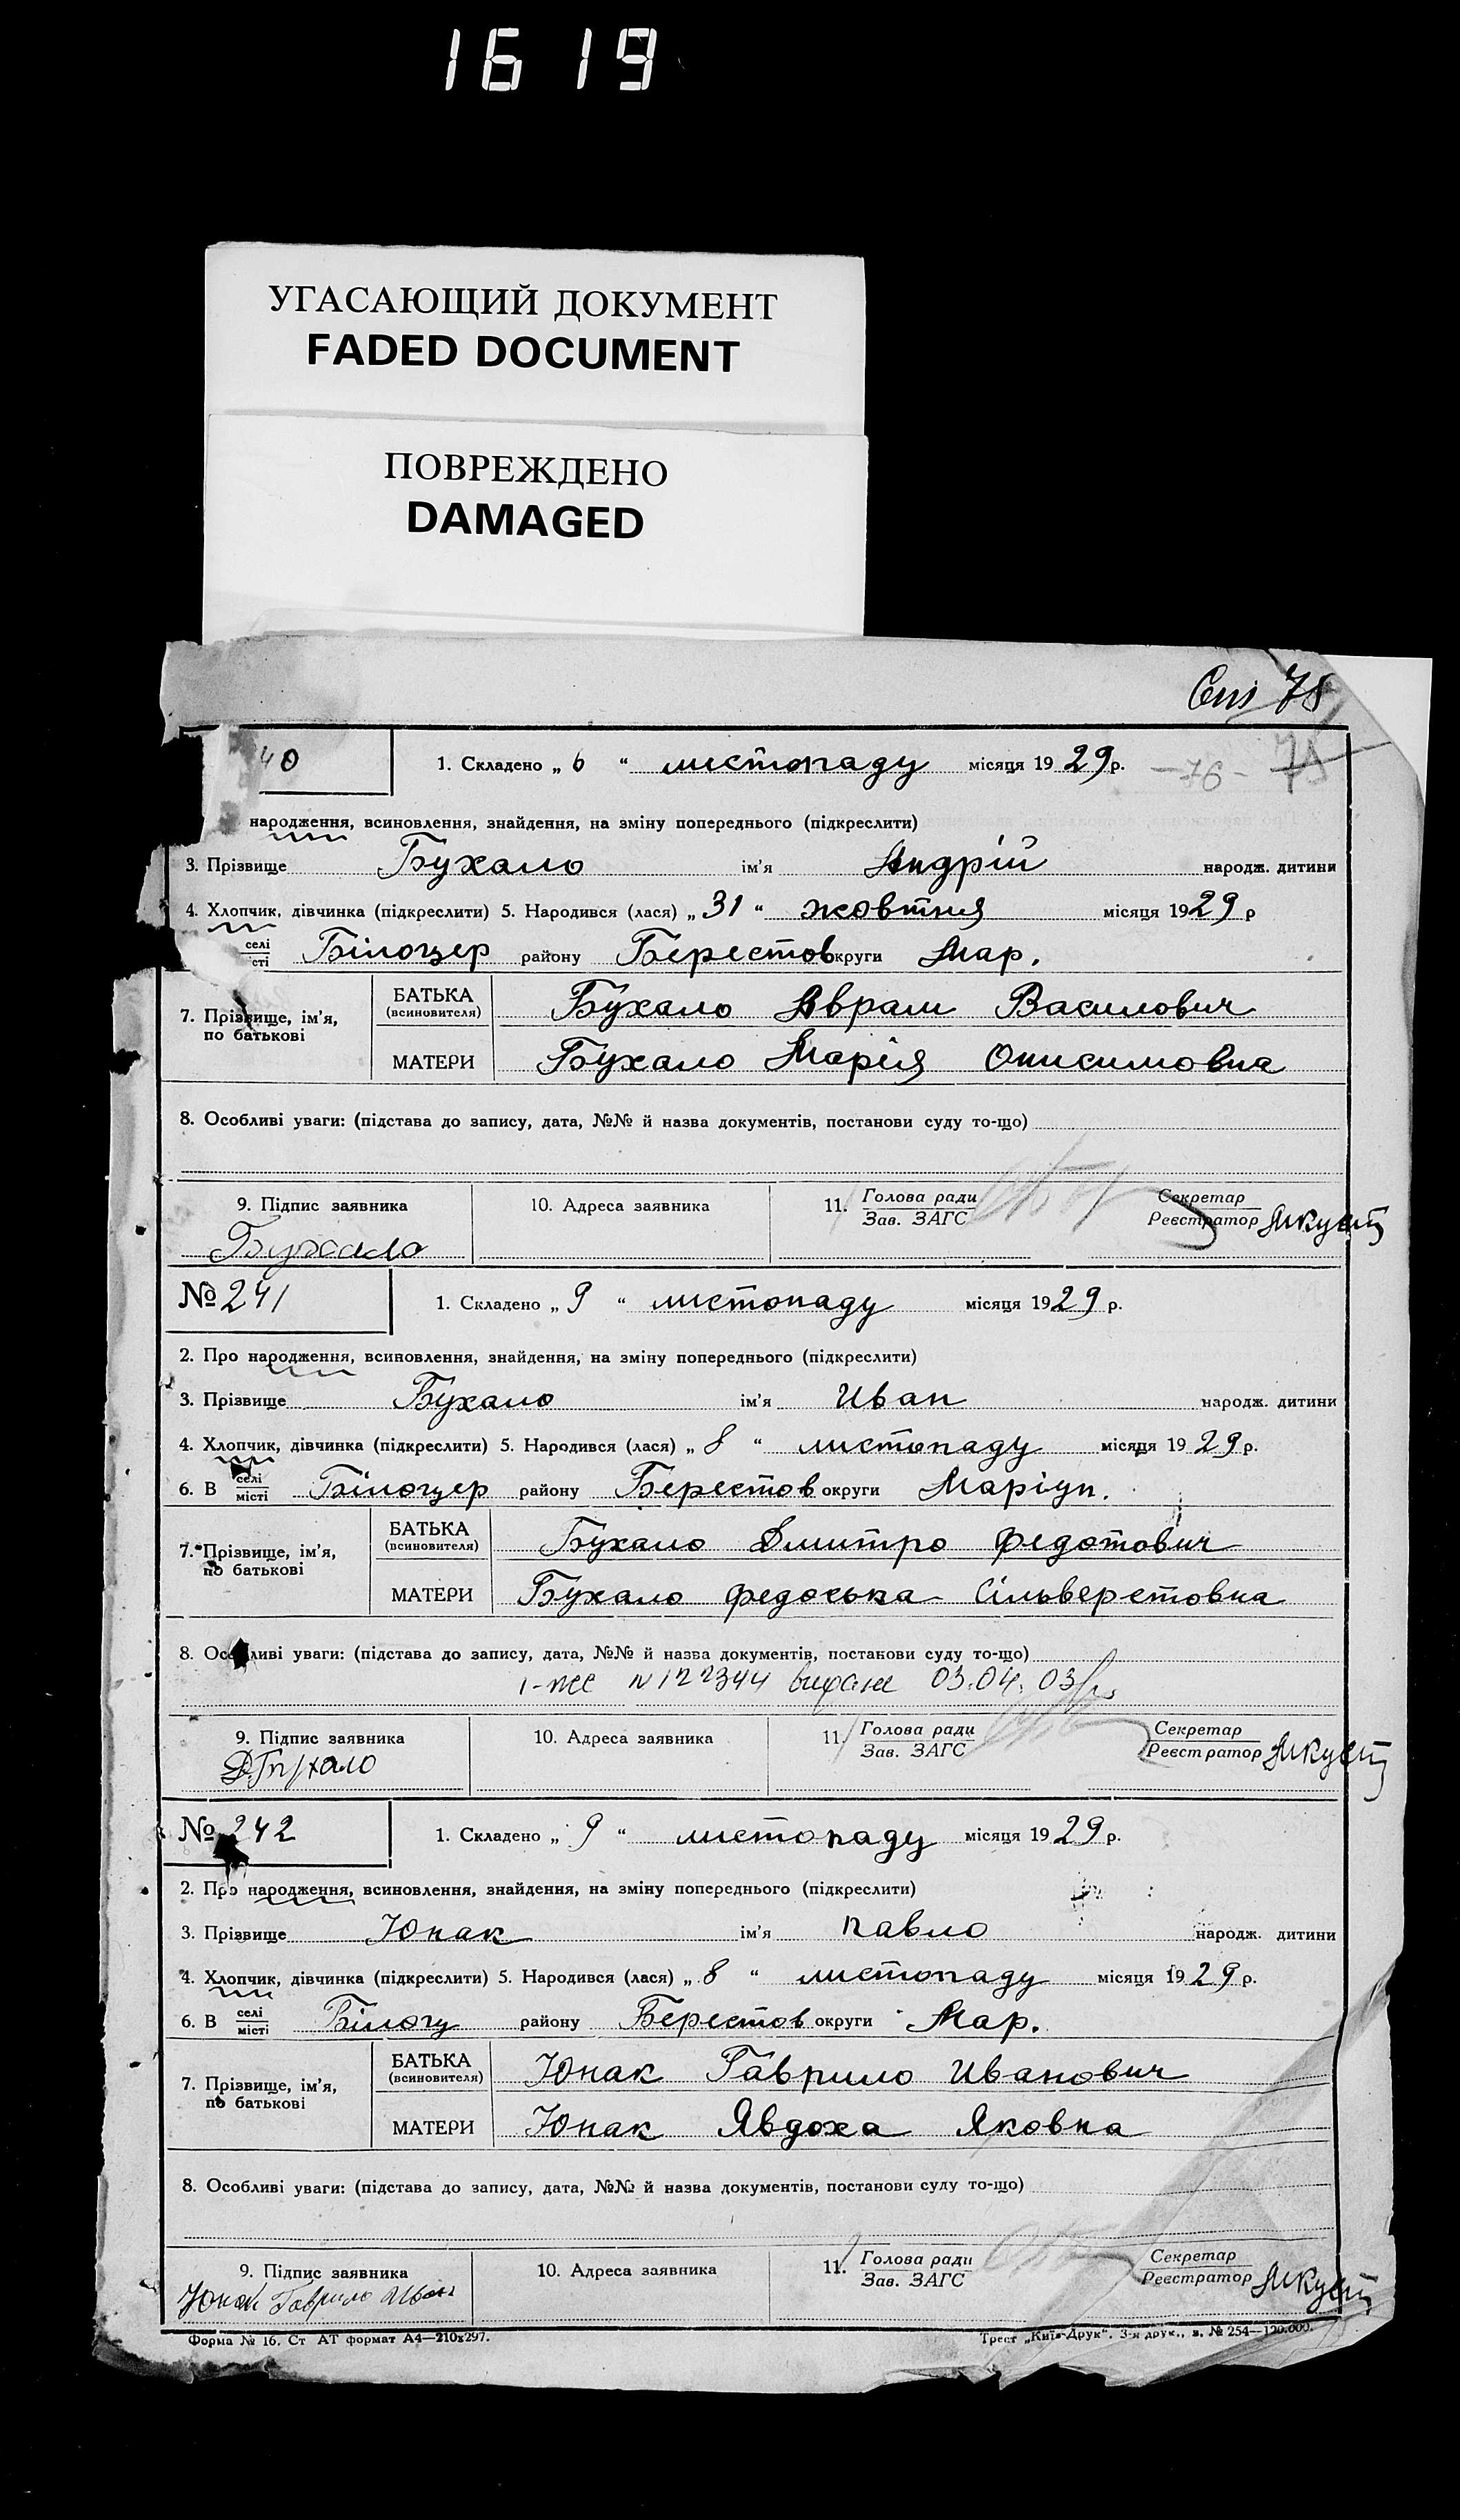 1619
УГАСАЮЩИЙ ДОКУМЕНТ
FADED DOCUMENT
ПОВРЕЖДЕНО
DAMAGED
78
40 1. Складено „ 6 “ листопаду місяця 1929 р. -76- 75
народження, всиновлення, знайдення, на зміну попереднього (підкреслити)
3. Прізвище Бухало ім’я Андрій народж. дитини
4. Хлопчик, дівчинка (підкреслити) 5. Народився (лася) „ 31 “ жовтня місяця 1929 р
селі
сті Білоцер району Берестов округи Мар.
7. Прізвище, ім’я, по батькові
БАТЬКА (всиновителя) Бухало Аврам Василович
МАТЕРИ Бухало Марія Онисимовна
8. Особливі уваги: (підстава до запису, дата, №№ й назва документів, постанови суду то-що)
9. Підпис заявника 10. Адреса заявника 11. Голова ради Секретар
Зав. ЗАГС Реєстратор
Бухало
№ 241 1. Складено „ 9 “ листопаду місяця 1929 р.
2. Про народження, всиновлення, знайдення, на зміну попереднього (підкреслити)
3. Прізвище Бухало ім’я Иван народж. дитини
4. Хлопчик, дівчинка (підкреслити) 5. Народився (лася) „ 8 “ листопаду місяця 1929 р.
6. В селі
місті Білоцер району Берестов округи Маріуп.
7. Прізвище, ім’я, по батькові
БАТЬКА (всиновителя) Бухало Дмитро Федотович
МАТЕРИ Бухало Федоська Сільверстовна
8. Особливі уваги: (підстава до запису, дата, №№ й назва документів, постанови суду то-що)
N 122344 видане 03.04.03
9. Підпис заявника 10. Адреса заявника 11. Голова ради Секретар
Зав. ЗАГС Реєстратор
№ 242 1. Складено „ 9 “ листопаду місяця 1929 р.
2. Про народження, всиновлення, знайдення, на зміну попереднього (підкреслити)
3. Прізвище Юнак ім’я Павло народж. дитини
4. Хлопчик, дівчинка (підкреслити) 5. Народився (лася) „ 8 “ листопаду місяця 1929 р.
6. В селі
місті Білоц району Берестов округи Мар.
7. Прізвище, ім’я, по батькові
БАТЬКА (всиновителя) Юнак Гаврило Иванович
МАТЕРИ Юнак Явдоха Яковна
8. Особливі уваги: (підстава до запису, дата, №№ й назва документів, постанови суду то-що)
9. Підпис заявника 10. Адреса заявника 11. Голова ради Секретар
Зав. ЗАГС Реєстратор
Юнак Гаврило Иван
Форма № 16. Ст АТ формат А4—210х297. Трест „Київ-Друк“. 3-я друк., з. № 254—120.000.